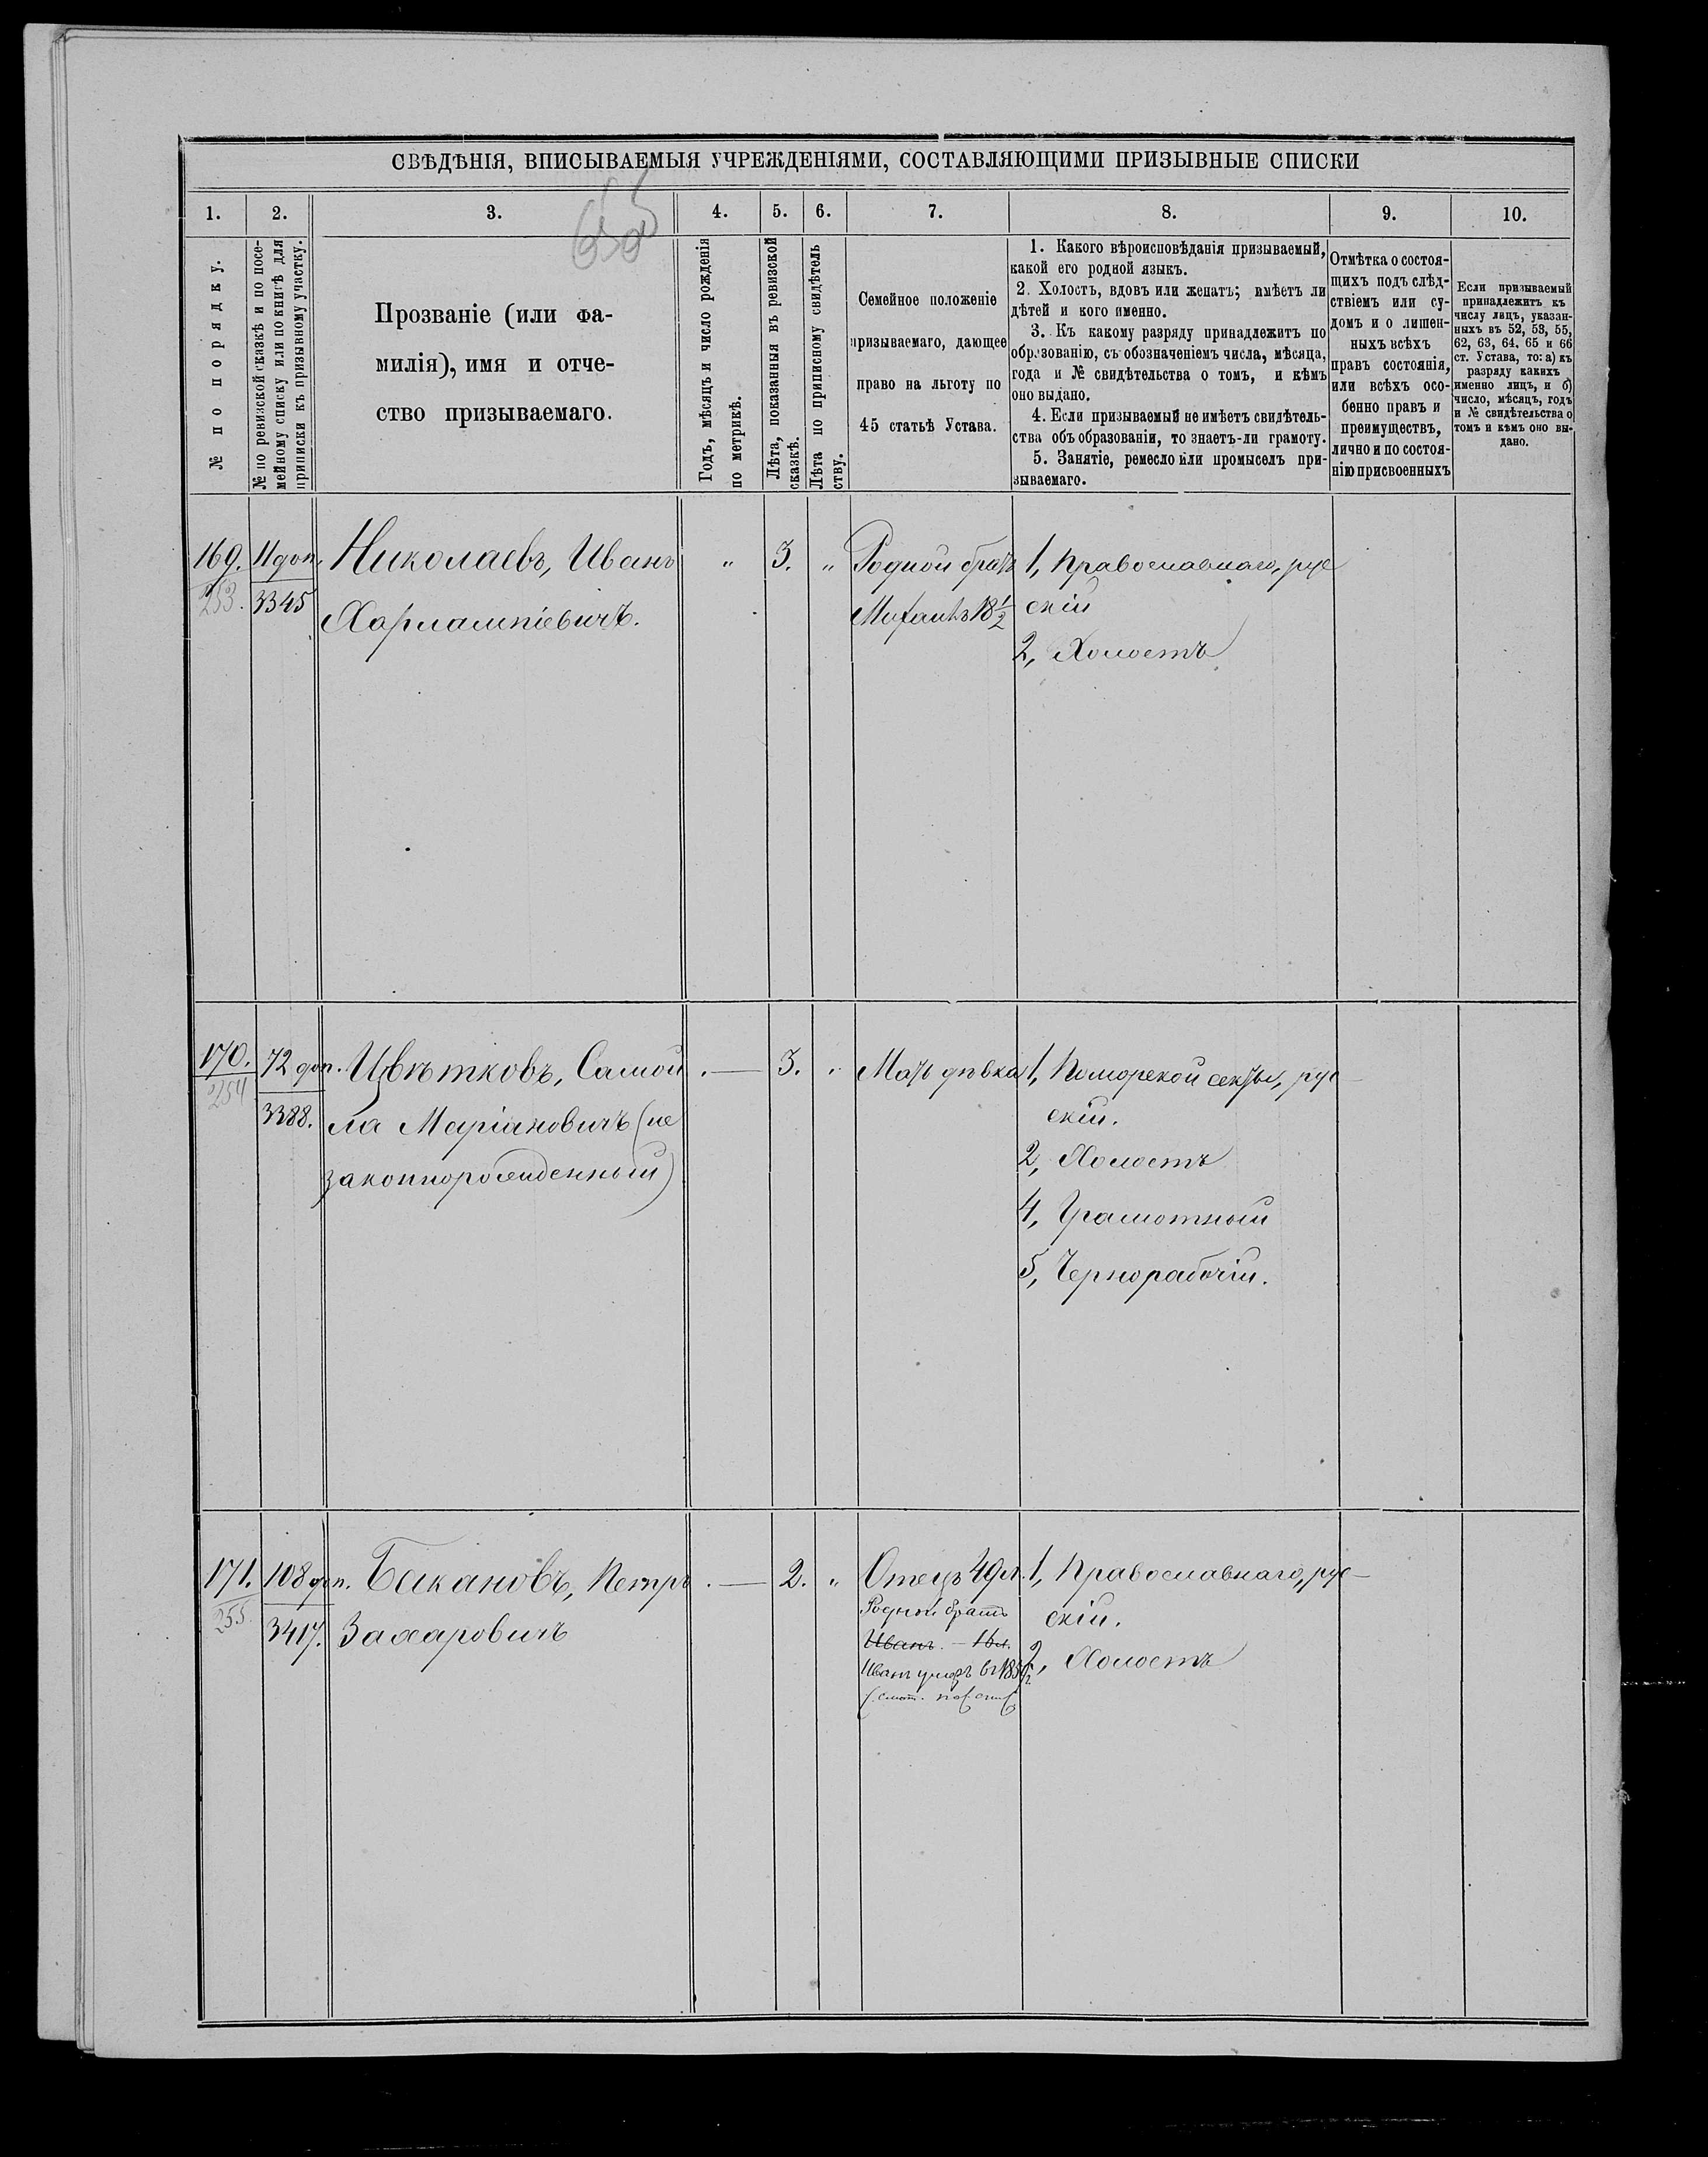 СВѢДѢНІЯ, ВПИСЫВАЕМЫЯ УЧРЕЖДЕНІЯМИ, СОСТАВЛЯЮЩИМИ ПРИЗЫВНЫЕ СПИСКИ
1.
2.
3.
4.
5.
6.
7.
8.
9.
10.
№ по порядку.
№ по ревизской сказкѣ и по посе-
мейному списку или по книгѣ для
приписки къ призывному участку.
Прозваніе (или фа-
милія), имя и отче-
ство призываемаго.
Годъ, мѣсяцъ и число рожденія
по метрикѣ.
Лѣта, показанныя въ ревизской
сказкѣ.
Лѣта по приписному свидѣтель
ству.
Семейное положеніе
призываемаго, дающее
право на льготу по
45 статьѣ Устава.
1. Какого вѣроисповѣданія призываемый,
какой его родной языкъ.
2. Холостъ, вдовъ или женатъ; имѣетъ ли
дѣтей и кого именно.
3. Къ какому разряду принадлежитъ по
образованію, съ обозначеніемъ числа, мѣсяца,
года и № свидѣтельства о томъ, и кѣмъ
оно выдано.
4. Если призываемый не имѣетъ свидѣтель-
ства объ образованіи, то знаетъ-ли грамоту.
5. Занятіе, ремесло или промыселъ при-
зываемаго.
Отмѣтка о состоя-
щихъ подъ слѣд-
ствіемъ или су-
домъ и о лишен-
ныхъ всѣхъ
правъ состоянія,
или всѣхъ осо-
бенно правъ и
преимуществъ,
лично и по состоя-
нію присвоенныхъ
Если призываемый
принадлежитъ къ
числу лицъ, указан-
ныхъ въ 52, 53, 55,
62, 63, 64, 65 и 66
ст. Устава, то: а) къ
разряду какихъ
именно лицъ, и б)
число, мѣсяцъ, годъ
и № свидѣтельства о
томъ и кѣмъ оно вы-
дано.
169.
253.
11 доп.
3345
Николаевъ, Иванъ
Харлампіевичъ.
"
3.
"
Родной братъ
Михаилъ 18 1/2
1, Православнаго, рус
скій
2, Холостъ
170.
254
72 доп.
3388.
Цвѣтковъ, Самой
ла Маріановичъ (не
законнорожденный)
. —
3.
"
Мать дѣвка
1, Поморской секты, рус—
скій.
2, Холостъ
4, Грамотный
5, Чернорабочій.
171.
255.
108 доп.
3417.
Бакановъ, Петръ
Захаровичъ
. —
2.
"
Отецъ 49 л.
Родной братъ
Иванъ. — 16 л.
Иванъ умеръ въ
1, Православнаго, рус—
скій.
2, Холостъ